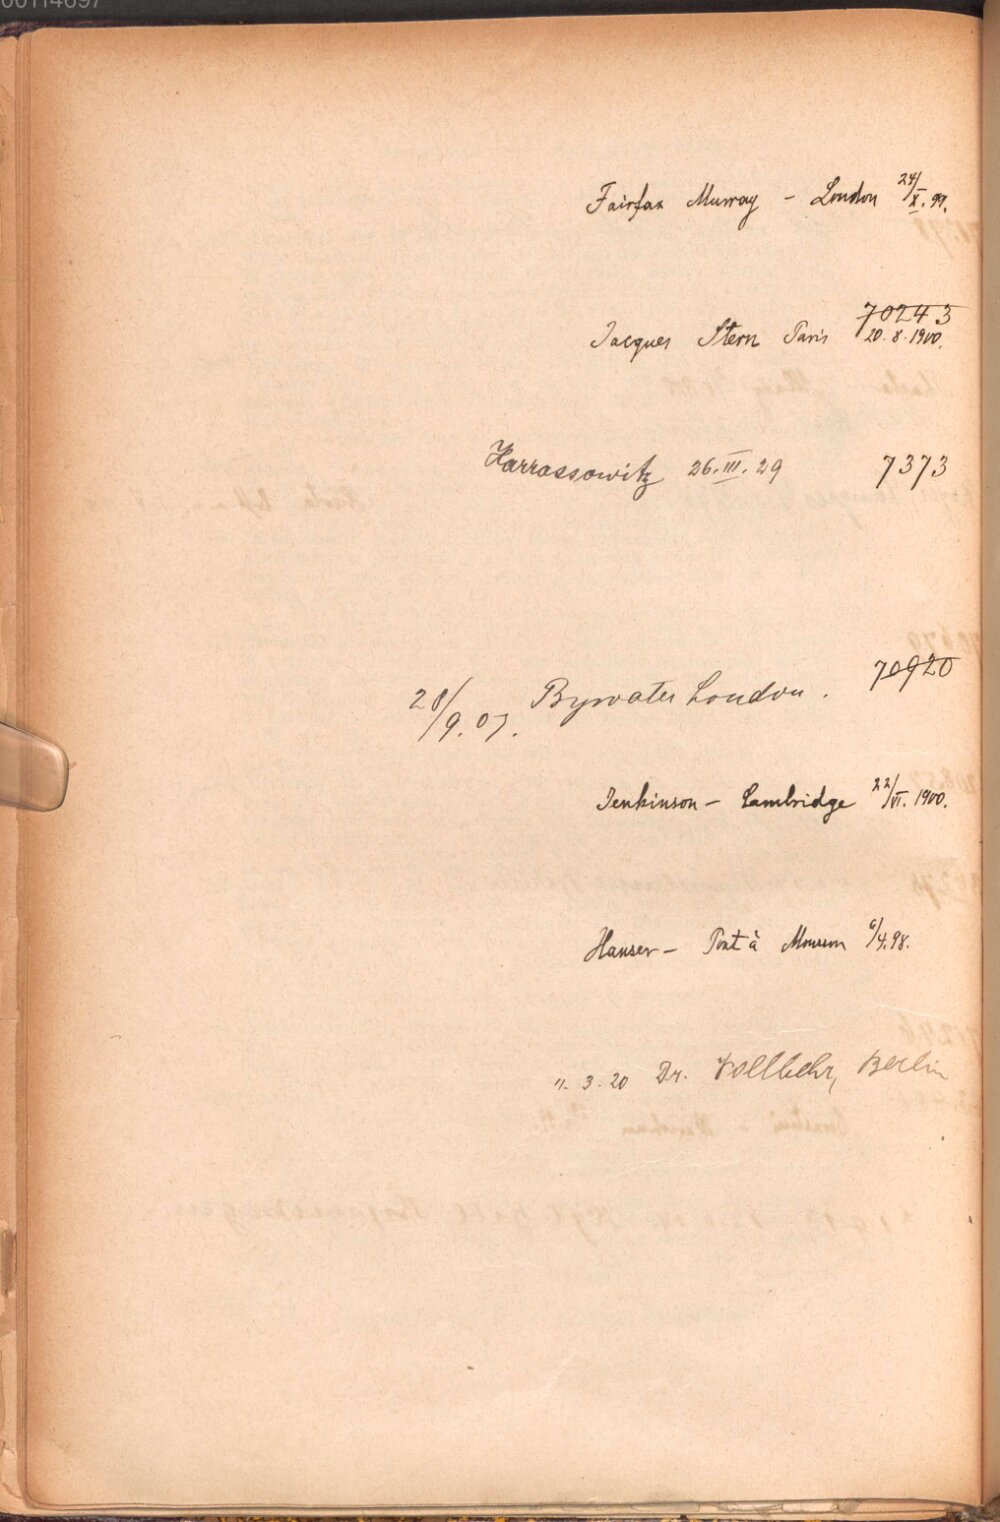 Fairfax Murray - London 24/X. 99.
70243
Jacques Stern Paris 20. 8. 1900.
Harrassowitz 26. III. 29 7373
70920
28/9. 07. Bywater London.
Jenkinson - Cambridge 22/VI. 1900.
Hauser - Pont à Mousson 6/4. 98.
11. 3. 20 Dr. Vollbehr, Berlin